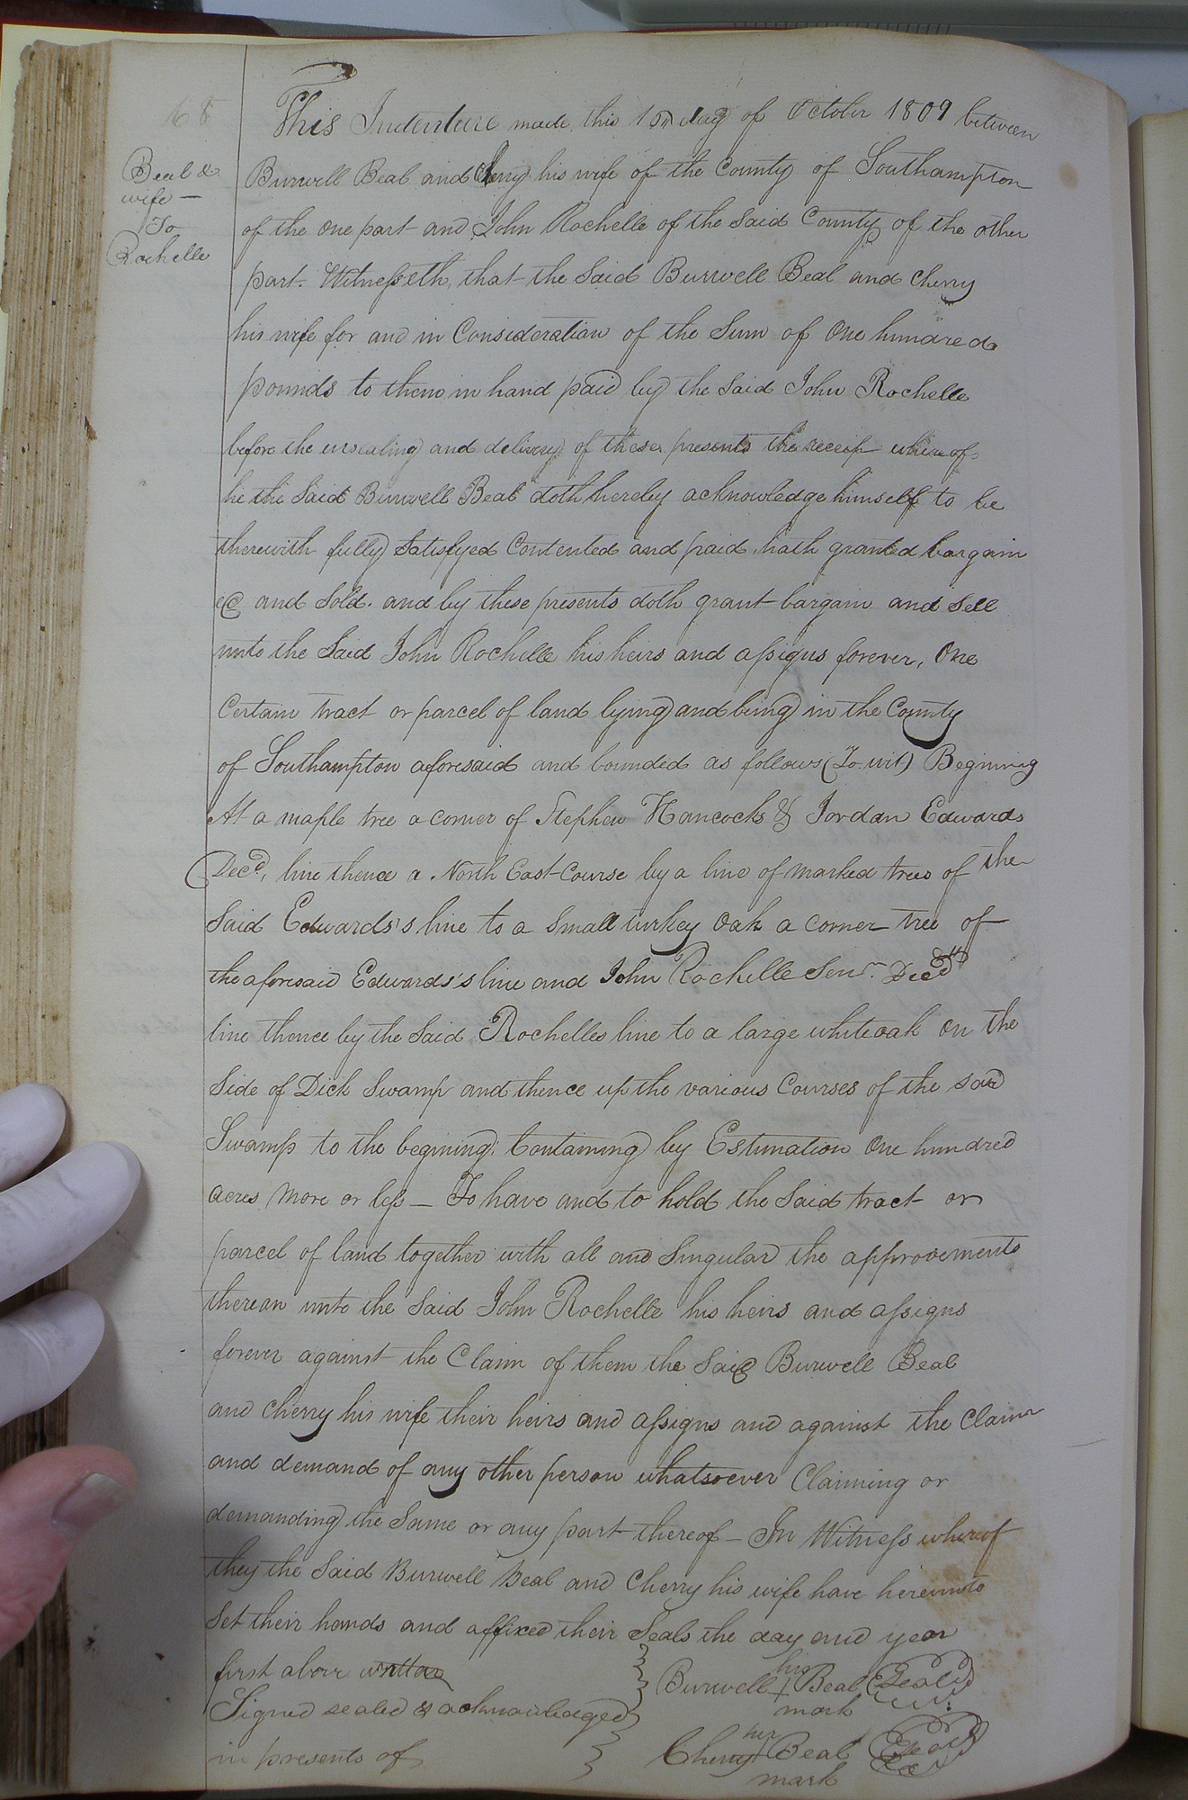 168
Beal &
wife —
To
Rochelle
This Indenture made this 15th day of October 1809 between
Burwell Beal and Cherry his wife of the County of Southampton
of the one part and John Rochelle of the Said County of the other
part. Witnesseth, that the Said Burwell Beal and Cherry
his wife for and in Consideration of the Sum of One hundred
pounds to them in hand paid by the Said John Rochelle
before the ensealing and delivery of these presents the receip whereof
he the Said Burwell Beal doth hereby acknowledge himself to be
therewith fully Satisfyed Contented and paid hath granted bargain
ed and Sold. and by these presents doth grant bargain and Sell
unto the Said John Rochelle his heirs and assigns forever, One
Certain tract or parcel of land lying and being in the County
of Southampton aforesaid and bounded as follows (To wit) Begining
At a maple tree a corner of Stephen Hancocks & Jordan Edwards
Decd, line thence a North East Course by a line of marked trees of the
Said Edwards's line to a Small turkey Oak a corner tree of
the aforesaid Edwards's line and John Rochelle Senr. Decd
line thence by the Said Rochelles line to a large white oak on the
Side of Dick Swamp and thence up the various Courses of the said
Swamp to the begining; Containing by Estimation One hundred
acres more or less — To have and to hold the Said tract or
parcel of land together with all and Singular the approvements
thereon unto the Said John Rochelle his heirs and assigns
forever against the Claim of them the Said Burwell Beal
and Cherry his wife their heirs and assigns and against the Claim
and demand of any other person whatsoever Claiming or
demanding the Same or any part thereof — In Witness whereof
they the Said Burwell Beal and Cherry his wife have hereunto
Set their hands and affixed their Seals the day and year
first above written
Signed sealed & acknowledged
in presents of
his
Burwell + Beal Seal
mark
her
Cherry + Beal Seal
mark